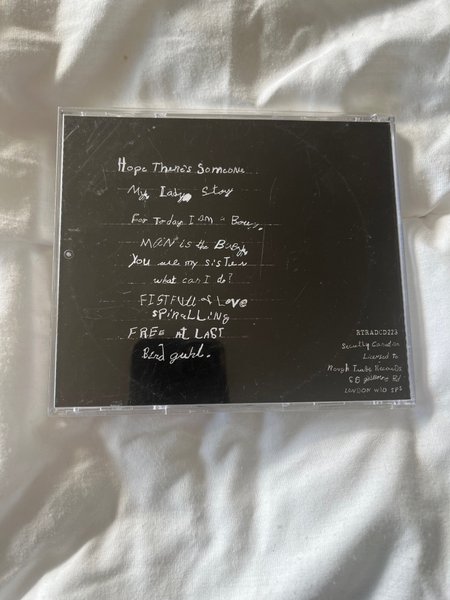 Hope There's Someone
My Lady Story
For Today I am a Boy.
MAN is the Baby
You are my sister
what can I do?
FISTFULL of LOVE
SPiRaLLiNg
FREE at LAST
Bird guhl.
RTRADCD223
Secretly Canadian
Licensed to
Rough Trade Records
66 golborne Rd
LONDON W10 5PS